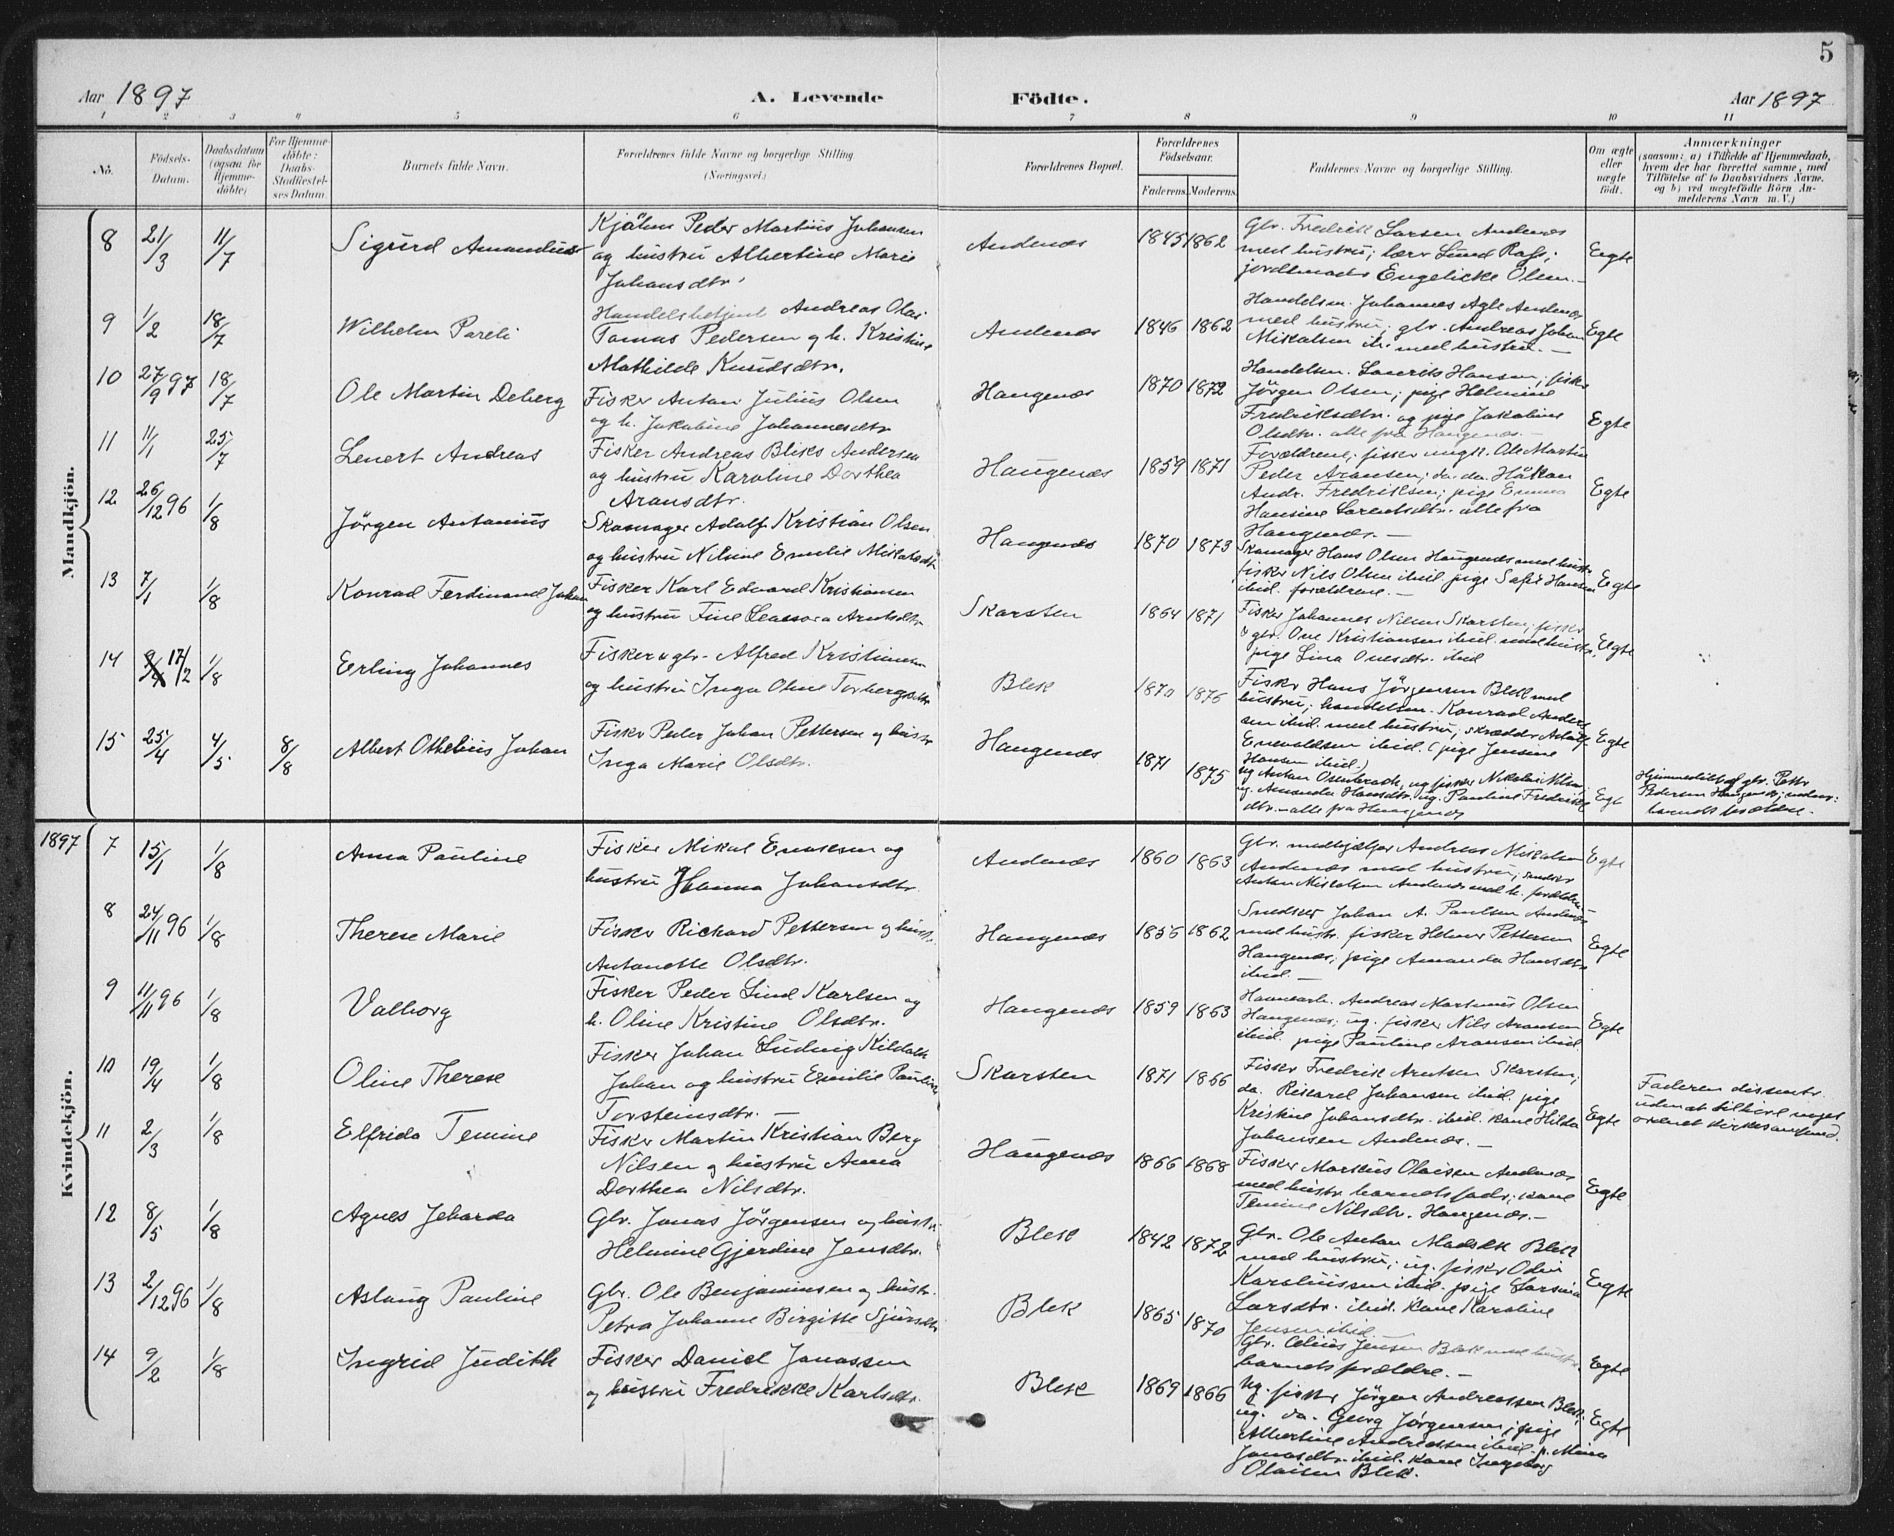 5
Aar 1897
A. Levende
Födte.
Aar 1897
1 2 3 4 5 6 7 8 9 10 11
No.
Födsels-
Datum.
Daabsdatum
(ogsaa for
Hjemme-
döbte)
For Hjemme-
döbte:
Daabs-
Stadfæstel-
ses Datum
Barnets fulde Navn.
Forældrenes fulde Navne og borgerlige Stilling
(Næringsvei.)
Forældrenes Bopæl.
Forældrenes
Födselsaar.
Faderens. Moderens.
Faddernes Navne og borgerlige Stilling.
Om ægte
eller
uægte
født.
Anmærkninger
(saasom: a) i Tilfælde af Hjemmedaab,
hvem der har forrettet samme, med
Tilföielse af to Daabsvidners Navne.
og b) ved uægtefödte Börn An-
melderens Navn m. V.)
Mandkjön.
8 21/3 11/7 Sigurd Amandus
Peder Martius Johansen
og hustru Albertine Marie
Johansdtr.
Andenæs 1845 1862
Gbr. Fredrik Larsen Andenæs
med hustru; lærer Lund
jordmoder Engelicke Olsen.
Egte
9 1/2 18/7 Wilhelm Pareli
Handelsbetjent Andreas Olai
Tomas Pedersen og h. Kristine
Mathilde Knudsdtr.
Andenæs 1846 1862
Handelsm. Johannes Agle Andenæs
med hustru; gbr. Andreas Johan
Mikalsen ib. med hustru. —
Egte
10 27/9 97 18/7 Ole Martin Deberg
Fisker Antan Julius Olsen
og h. Jakobine Johannesdtr.
Haugenæs 1870 1872
Handelsm. Laurits Hansen; fisker
Jörgen Olsen; pige Helmine
Fredriksdtr. og pige Jakobine
Olsdtr. alle fra Haugenæs. —
Egte
11 11/1 25/7 Lenert Andreas
Fisker Andreas Bliks Andersen
og hustru Karoline Dorthea
Aronsdtr.
Haugenæs 1859 1871
Forældrene; fisker ungk. Ole Martin
Peder Aronsen; do. do. Håkon
Andr. Fredriksen; pige Emma
Hansine Lorentsdtr. alle fra
Haugenæs. —
Egte
12 26/12 96 1/8 Jörgen Antonius
Skomager Adolf Kristian Olsen
og hustru Nilsine Emilie Mikalsdtr
Haugenæs 1870 1873
Skomager Hans Olsen Haugenæs med hustr.
fisker Nils Olsen ibid. pige Sofie Hansen
ibid. forældrene. —
Egte
13 7/1 1/8 Konrad Ferdinand Johan
Fisker Karl Edvard Kristiansen
og hustru Fine Leaesora Arntsdtr.
Skarsten 1864 1871
Fisker Johannes Nilsen Skarsten; fisker
& gbr. One Kristiansen ibid. med hustr.
pige Lina Onesdtr. ibid
Egte
14 17/2 1/8 Erling Johannes
Fisker & gbr. Alfred Kristiansen
og hustru Inga Oline Torbergsdtr
Blek 1870 1876
Fisker Hans Jörgensen Blek med
hustru; handelsm. Konrad Ander-
sen ibid. med hustru; skrædder Adolf
Enevoldsen ibid. (pige Jensine
Hansen ibid.)
Egte
15 25/4 4/5 8/8 Albert Othelius Johan
Fisker Peder Johan Pettersen og hustr.
Inga Marie Olsdtr.
Haugenæs 1871 1875
ug. Amanda Hansdtr. ug. Pauline Fredriks-
dtr. — alle fra Haugenæs
Egte
Hjemmedöbt af gbr. Petter
Pedersen Haugenæs;
barnets forældre.
1897
Kvindekjön.
7 15/1 1/8 Anna Pauline
Fisker Mikal Enoksen og
hustru Hanna Johansdtr.
Andenæs 1860 1863
Gbr. medhjælper Andreas Mikalsen
Andenæs med hustru; snedker
Antan Mikalsen Andenæs med h. forældre
Egte
8 24/11 96 1/8 Therese Marie
Fisker Richard Pettersen og hustr.
Antonette Olsdtr.
Haugenæs 1856 1862
Snedker Johan A. Paulsen Andenæs
med hustr. fisker Helmer Pettersen
Haugenæs; pige Amanda Hansdtr
ibid. —
Egte
9 11/11 96 1/8 Valborg
Fisker Peder Lind Karlsen og
h. Oline Kristine Olsdtr.
Haugenæs 1859 1863
Havnearb. Andreas Martinus Olsen
Haugenæs; ug. fisker Nils Aronsen
ibid. pige Pauline Aronsen ibid.
Egte
10 19/4 1/8 Oline Therese
Fisker Johan Ludvig Kildahl
Johan og hustru Emilie Pauline
Torsteinsdtr. —
Skarsten 1871 1866
Fisker Fredrik Arntsen Skarsten;
do. Rikard Johansen ibid. pige
Kristine Johansdtr. ibid. kone Hilda
Johansen Andenæs. —
Egte
Faderen dissenter
uden at tilhöre noget
ordnet kirkesamfund.
11 2/3 1/8 Elfrida Temine
Fisker Martin Kristian Berg
Nilsen og hustru Anna
Dorthea Nilsdtr.
Haugenæs 1866 1868
Fisker Markus Olaisen Andenæs
med hustr. barnets fader; kone
Temine Nilsdtr. Haugenæs. —
Egte
12 8/5 1/8 Agnes Jekarda
Gbr. Jonas Jörgensen og hustr.
Helmine Gjerdine Jensdtr.
Blek 1842 1872
Gbr. Ole Antan Madsen Blek
med hustru; ug. fisker Odin
Karoliussen ibid. pige Larsine
Larsdtr. ibid. kone Karoline
Jensen ibid
Egte
13 2/12 96 1/8 Aslaug Pauline
Gbr. Ole Benjaminsen og hustr.
Petra Johanne Birgitte Sjursdtr
Blek 1865 1870
Gbr. Jensen Blek med hustr.
barnets forældre. —
Egte
14 9/2 1/8 Ingrid Judith
Fisker Daniel Jonassen
og hustru Fredrikke Karlsdtr.
Blek 1869 1866
Ug. fisker Jörgen Andreassen Blek;
ug. do. Georg Jörgensen; pige
Albertine Andreassen ibid. p. Mina
Jonasdtr. ibid. kone Ingeborg
Olaisen Blek.
Egte